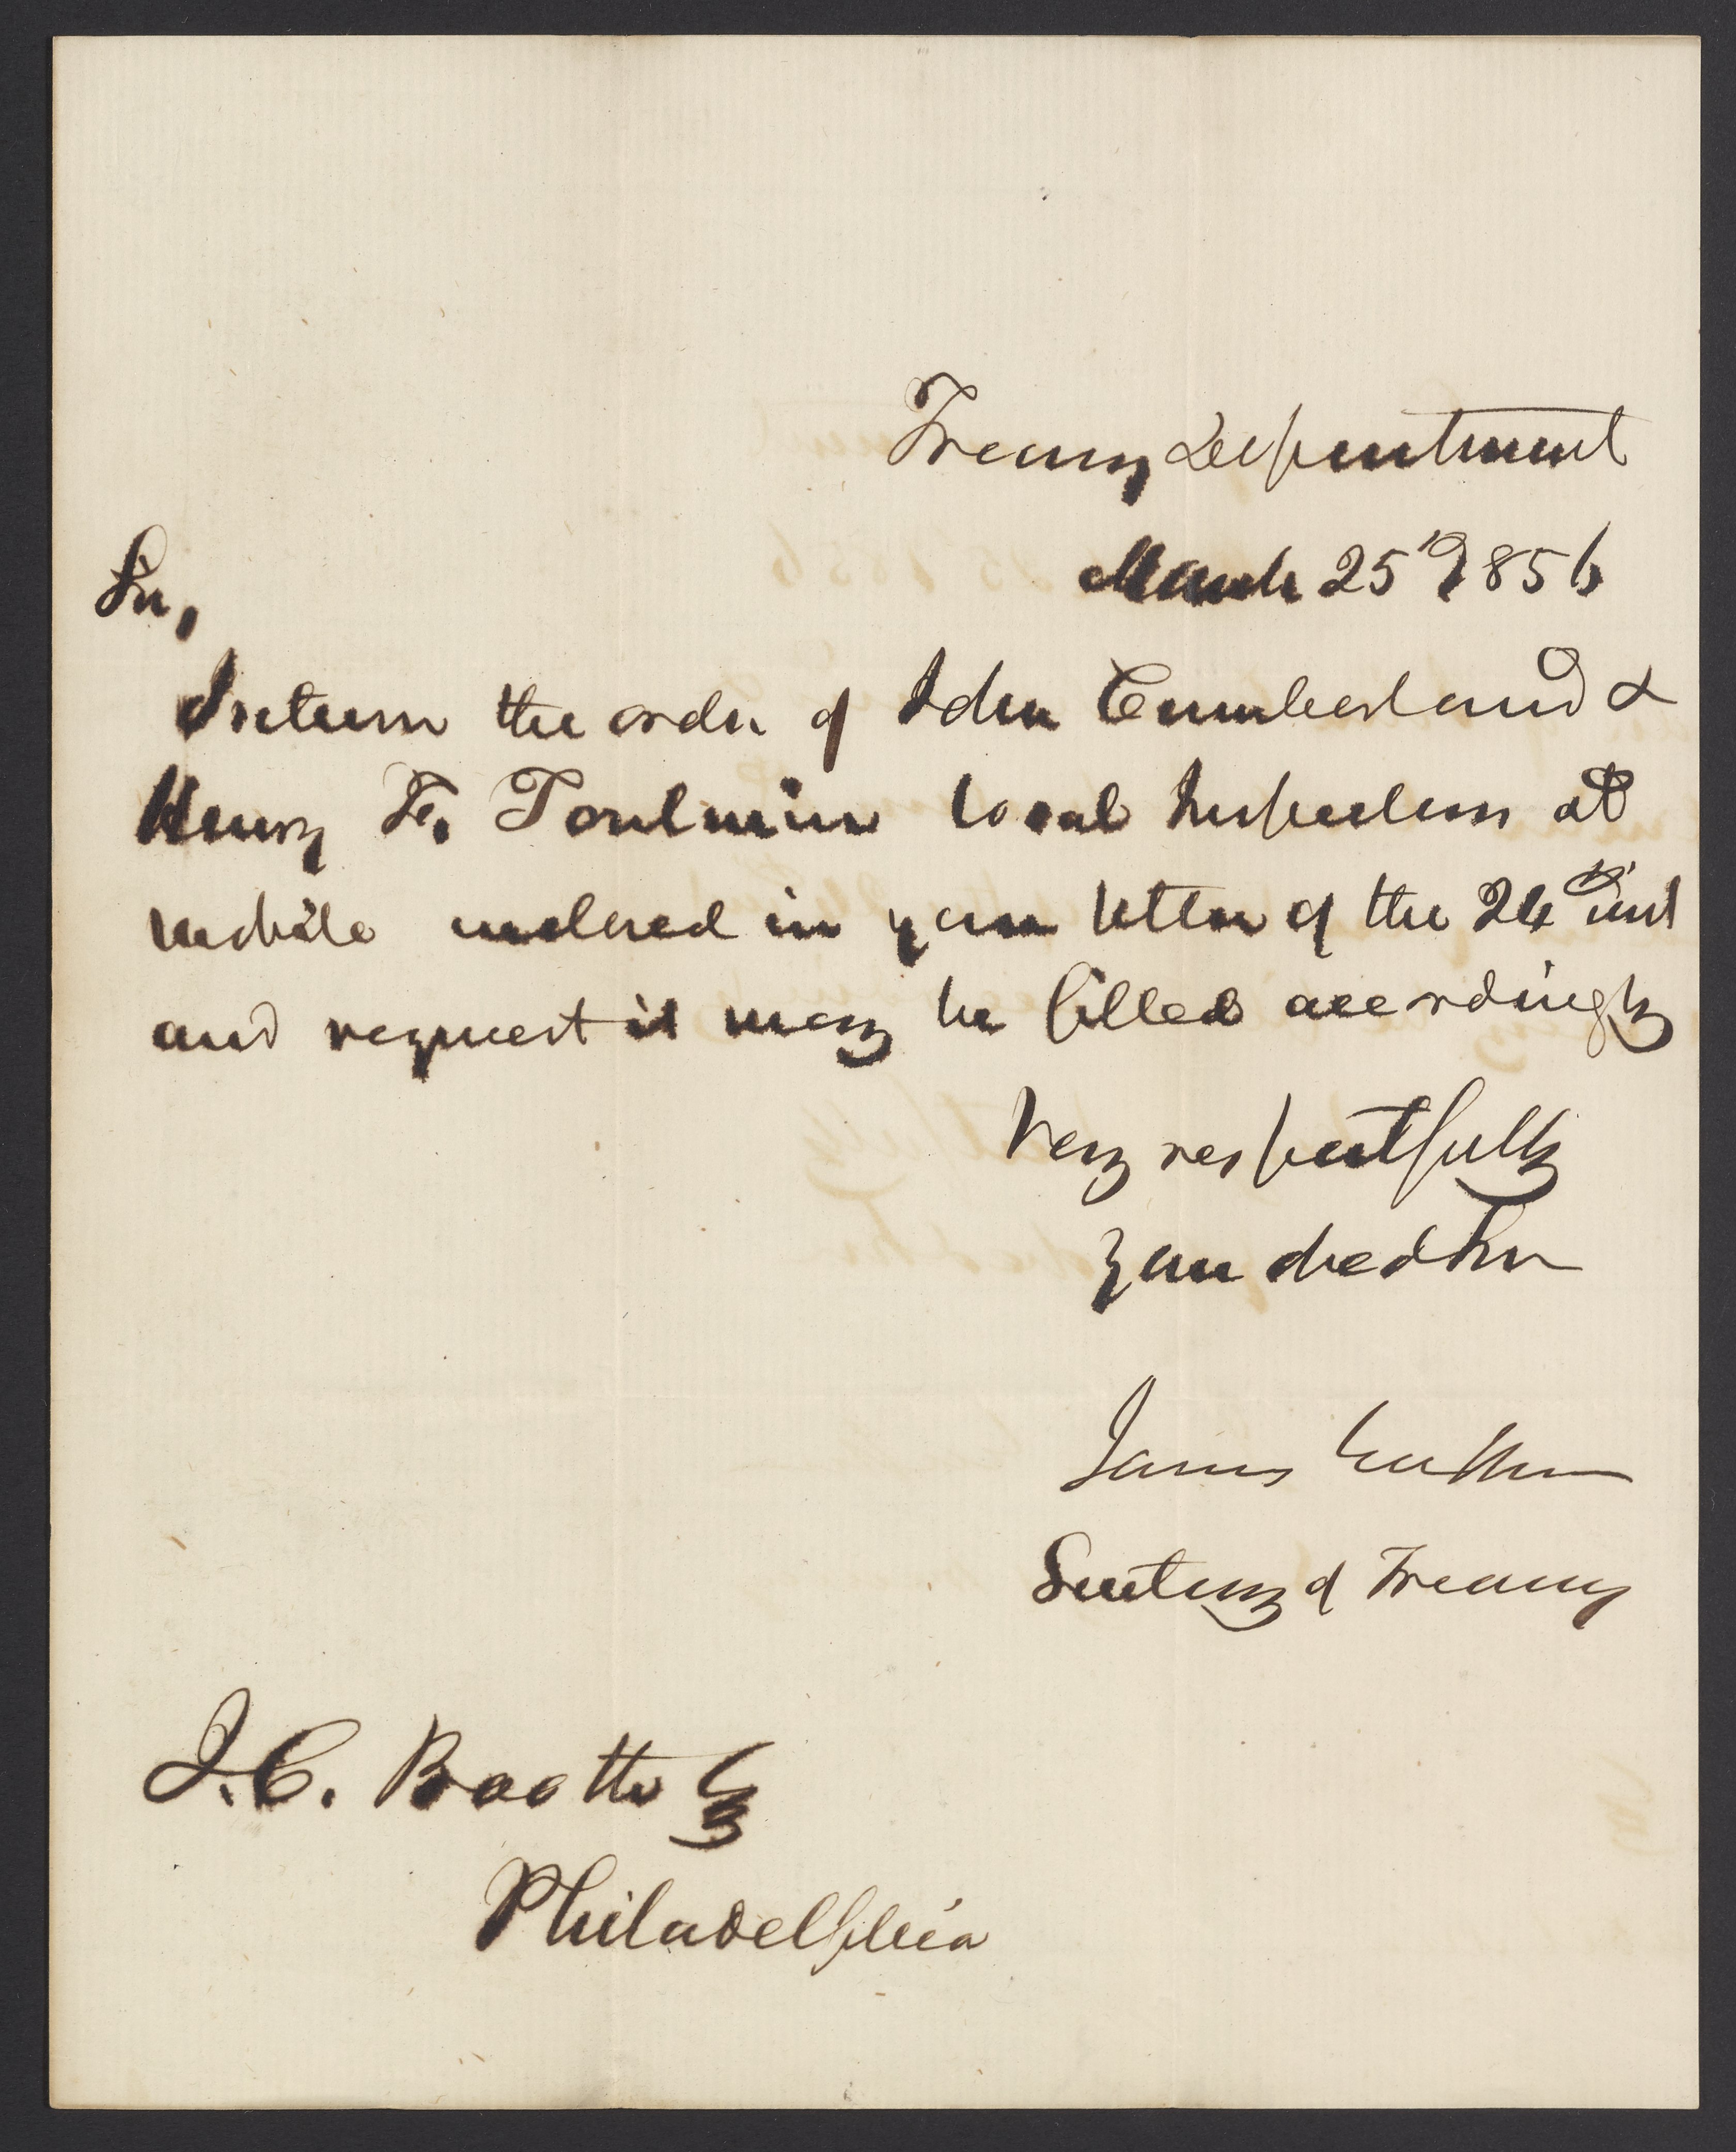 Treasury Department
March 25th 1856
Sir,
I return the order of John Cumberland &
Henry F. Toulmin local Inspectors at
Mobile enclosed in your letter of the 24th inst
and request it may be filled accordingly
Very respectfully
Your obed Svr
James Guthrie
Secretary of Treasury
J. C. Booth Esq
Philadelphia